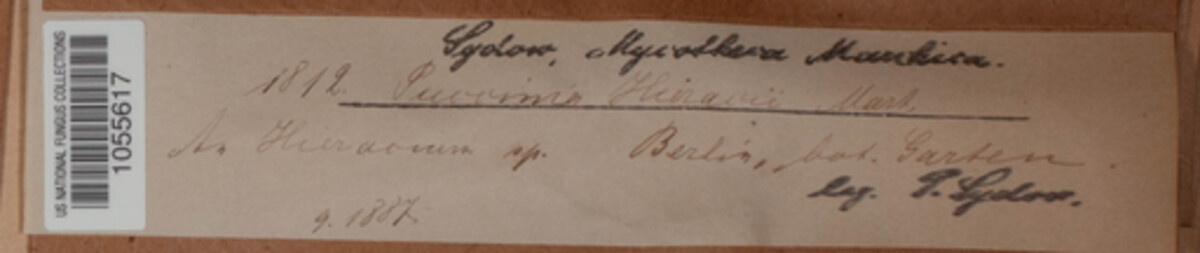 US NATIONAL FUNGUS COLLECTIONS
1055617
Sydow, Mycotheca Marchica.
1812. Puccinia Hieracii Mart.
An Hieracium sp. Berlin, bot. Garten.
leg. P. Sydow.
9. 1887.